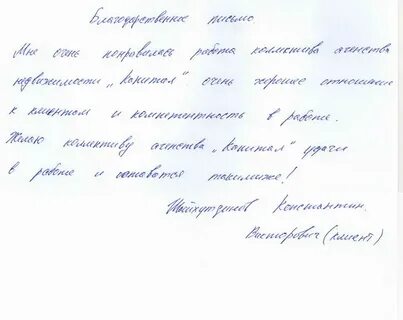 Благодарственное письмо
Мне очень понравилась работа коллектива агенства
недвижимости „Капитал". очень хорошее отношение
к клиентам и компетентность в работе.
Желаю коллективу агенства „Капитал" удачи
в работе и оставатся такимиже!
Шайхутдинов Константин.
Викторович (клиент)